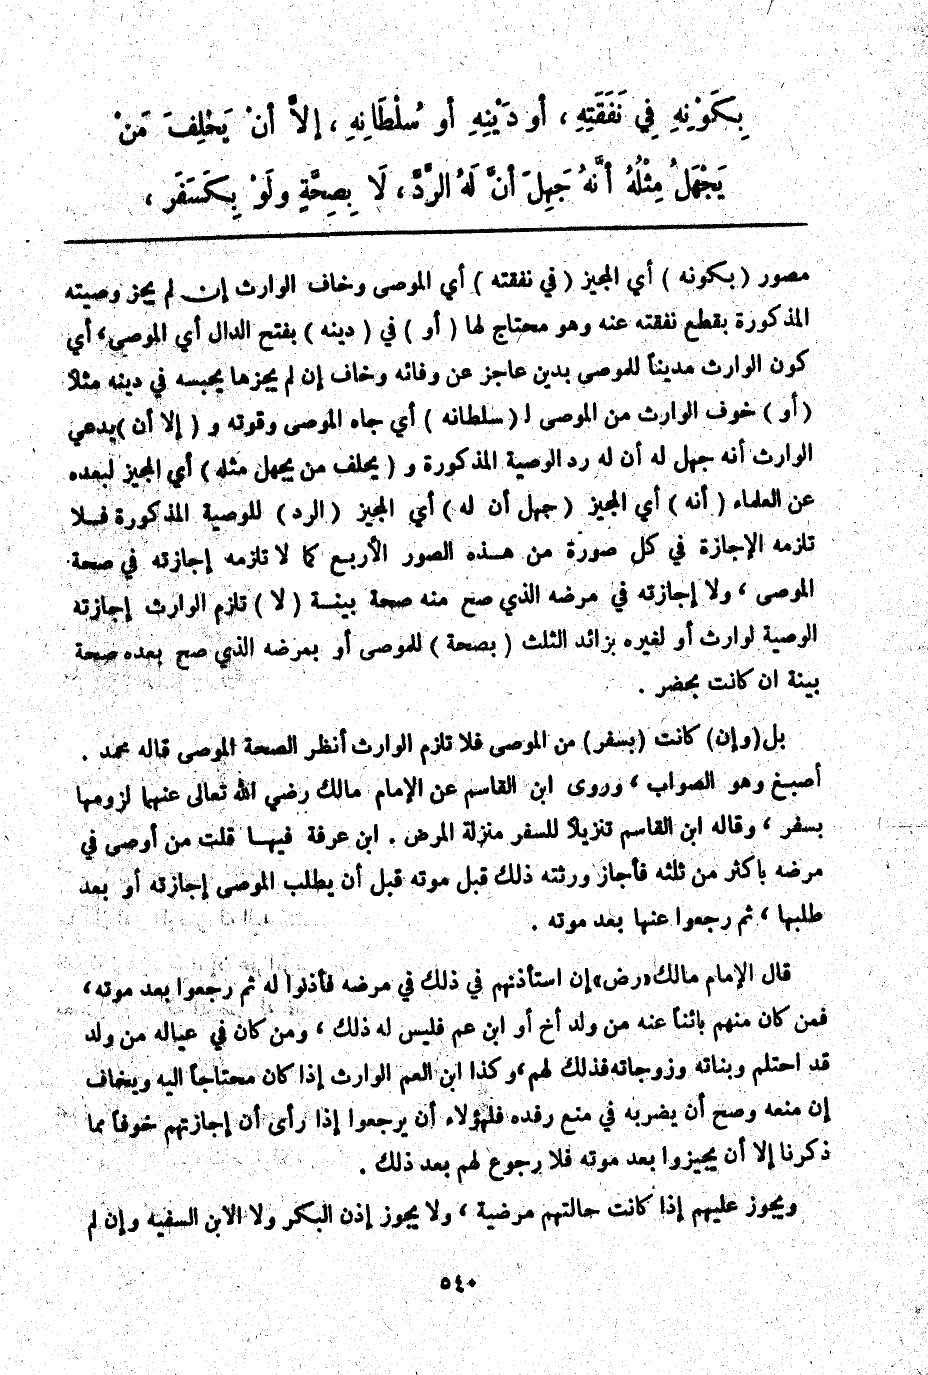 بِكَوْنِهِ فِي نَفَقَتِهِ ، أو دَيْنِهِ أو سُلْطَانِهِ ، إلاَّ أنْ يَحْلِفَ مَنْ
يَجْهَلُ مِثْلُهُ أنَّهُ جَهِلَ أنَّ لَهُ الرَّدَّ ، لَا بِصِحَّةٍ ولَوْ بِكَسَفَرٍ ،
مصور ( بكونه ) أي المجيز ( في نفقته ) أي الموصى وخاف الوارث إن لم يجز وصيته
المذكورة بقطع نفقته عنه وهو محتاج لها ( أو ) في ( دينه ) بفتح الدال أي الموصى ، أي
كون الوارث مديناً للموصى بدين عاجز عن وفائه وخاف إن لم يجزها يحبسه في دينه مثلاً
( أو ) خوف الوارث من الموصى لـ ( سلطانه ) أي جاه الموصى وقوته و ( إلا أن ) يدعي
الوارث أنه جهل له أن له رد الوصية المذكورة و ( يحلف من يجهل مثله ) أي المجيز لبعده
عن العلماء ( أنه ) أي المجيز ( جهل أن له ) أي المجيز ( الرد ) للوصية المذكورة فلا
تلزمه الإجازة في كل صورة من هذه الصور الأربع كما لا تلزمه إجازته في صحة
الموصى ، ولا إجازته في مرضه الذي صح منه صحة بينة ( لا ) تلزم الوارث إجازته
الوصية لوارث أو لغيره بزائد الثلث ( بصحة ) للموصى أو بمرضه الذي صح بعده صحة
بينة ان كانت بحضر .
بل (وإن) كانت (بسفر) من الموصى فلا تلزم الوارث أنظر الصحة الموصى قاله محمد .
أصبغ وهو الصواب ، وروى ابن القاسم عن الإمام مالك رضي الله تعالى عنهما لزومها
بسفر ، وقاله ابن القاسم تنزيلاً للسفر منزلة المرض . ابن عرفة فيها قلت من أوصى في
مرضه باكثر من ثلثه فأجاز ورثته ذلك قبل موته قبل أن يطلب الموصى إجازته أو بعد
طلبها ، ثم رجعوا عنها بعد موته .
قال الإمام مالك «رض» إن استأذنهم في ذلك في مرضه فأذنوا له ثم رجعوا بعد موته ،
فمن كان منهم بائناً عنه من ولد أخ أو ابن عم فليس له ذلك ، ومن كان في عياله من ولد
قد احتلم وبناته وزوجاته فذلك لهم ، و كذا ابن العم الوارث إذا كان محتاجاً اليه ويخاف
إن منعه وصح أن يضربه في منع رفده فلهؤلاء أن يرجعوا إذا رأى أن إجازتهم خوفاً مما
ذكرنا إلا أن يجيزوا بعد موته فلا رجوع لهم بعد ذلك .
ويجوز عليهم إذا كانت حالتهم مرضية ، ولا يجوز إذن البكر ولا الابن السفيه وإن لم
٥٤٠